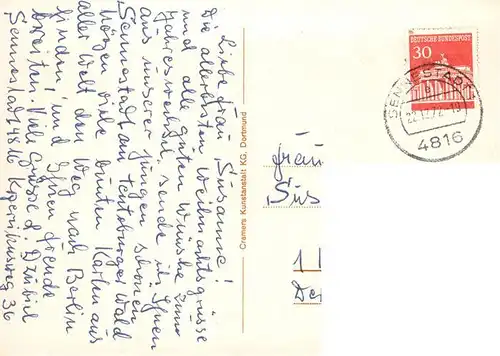 Liebe Frau Susanne!
Die allerbesten Weihnachtsgrüsse
und alle guten Wünsche zum
Jahreswechsel sende ich Ihnen
aus unserer jungen schönen
Sennestadt am Teutoburger Wald
Mögen viele bunten Karten aus
aller Welt den Weg nach Berlin
finden und Ihnen Freude
bereiten! Viele Grüsse
Sennestadt 4816
Cramers Kunstanstalt KG, Dortmund
DEUTSCHE BUNDESPOST
30
SENNESTADT
4816
Frau
Sus
1